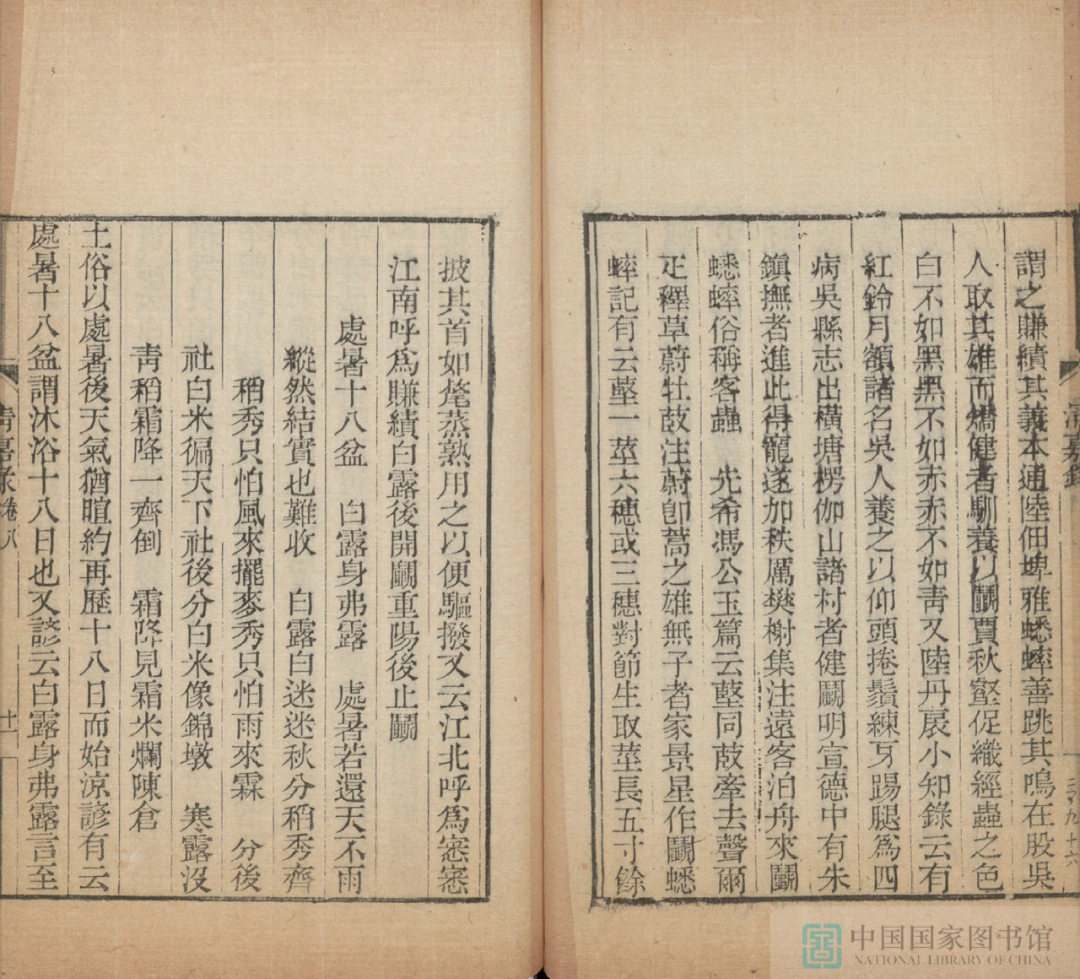 謂之賺績其義本通陸佃埤雅蟋蟀善跳其鳴在股吳
人取其雄而矯健者馴養以鬭賈秋壑促織經蟲之色
白不如黑黑不如赤赤不如青又陸丹扆小知錄云有
紅鈴月額諸名吳人養之以仰頭捲鬚練牙踢腿為四
病吳縣志出橫塘楞伽山諸村者健鬭明宣德中有朱
鎮撫者進此得寵遂加秩厲樊榭集注遠客泊舟來鬭
蟋蟀俗稱客蟲 先希馮公玉篇云莖同菣牽去聲爾
疋釋草蔚牡菣注蔚卽蒿之雄無子者家景星作鬭蟋
蟀記有云莖一莖六穗或三穗對節生取莖長五寸餘
披其首如氂蒸熟用之以便驅撥又云江北呼為窓窓
江南呼為賺績白露後開鬭重陽後止鬭
處暑十八盆 白露身弗露 處暑若還天不雨
縱然結實也難收 白露白迷迷秋分稻秀齊
稻秀只怕風來擺麥秀只怕雨來霖 分後
社白米徧天下社後分白米像錦墩 寒露沒
青稻霜降一齊倒 霜降見霜米爛陳倉
土俗以處暑後天氣猶暄約再歷十八日而始涼諺有云
處暑十八盆謂沐浴十八日也又諺云白露身弗露言至
清嘉录 卷八
十一
中国国家图书馆
NATIONAL LIBRARY OF CHINA